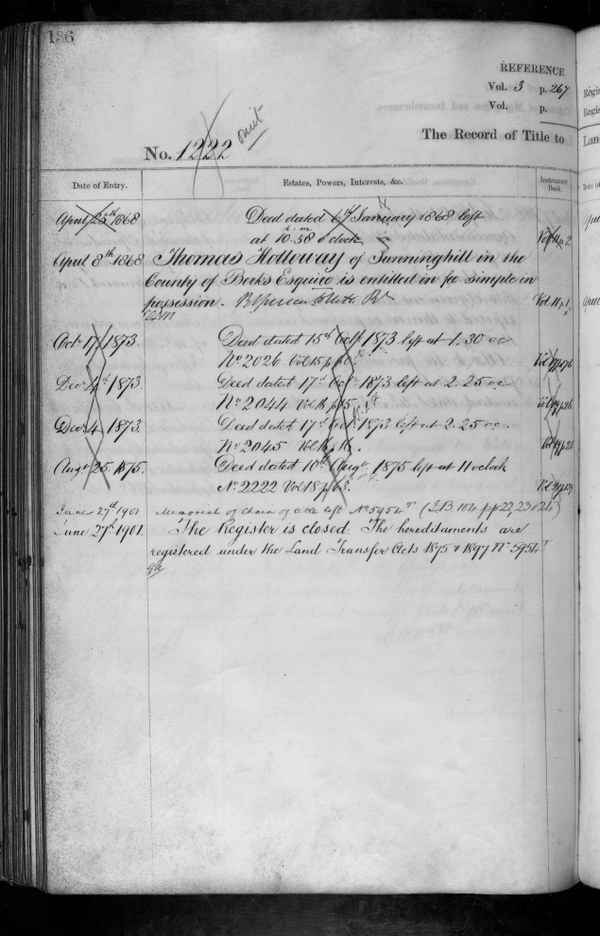 136
REFERENCE
Vol. 3 p. 267
Vol. p.
omit
The Record of Title to
No. 1222
Date of Entry. Estates, Powers, Interests, &c. Instrument Book.
April 25th 1868 Deed dated 6th January 1868 left
at 10.58 o'clock Vol 11 p 2
April 8th 1868 Thomas Holloway of Sunninghill in the
County of Berks Esquire is entitled in fee simple in
possession. Vol. 11 p. 1
Octr 17 1873. Deed dated 15th Octr 1873 left at 1.30 oc
No 2026 Vol 15 p
Decr 4th 1873. Deed dated 17th Octr 1873 left at 2.25 oc
No 2044 Vol 16 p 15
Decr 4. 1873. Deed dated 17th Octr 1873 left at 2.25 oc.
No 2045 Vol 16 p 16.
Augt 25. 1875. Deed dated 10th Augt 1875 left at 11 oclock
No. 2222 Vol 18 p 63.
June 27th 1901 Memorial of Chain of title left No 5954T (I.B 104 pp 22, 23 & 24)
June 27th 1901. The Register is closed. The hereditaments are
registered under the Land Transfer Acts 1875 & 1897 No 5954T